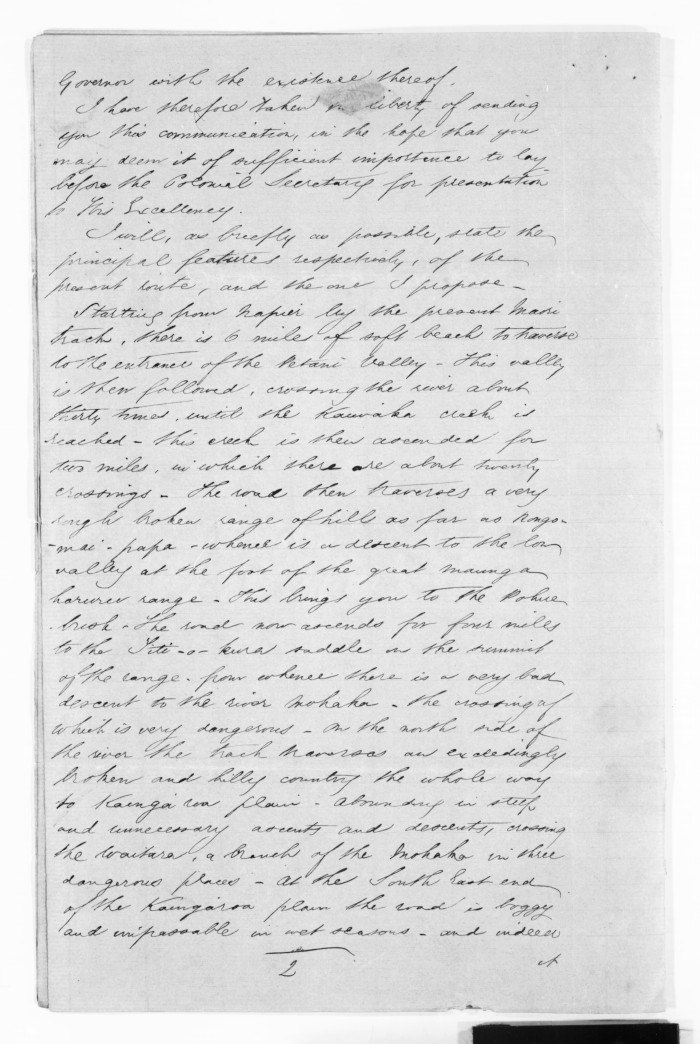 Governor with the existence thereof.
I have therefore taken the liberty of sending
you this communication, in the hope that you
may deem it of sufficient importence to lay
before the Colonial Secretary for presentation
to His Excellency.
I will, as briefly as possible, state the
principal features respectively, of the
present route, and the one I propose -
Starting from Napier by the present Maori
track, there is 6 miles of soft beach to traverse
to the entrance of the Petani Valley - This valley
is then followed, crossing the river about
thirty times, until the Kaiwaka creek is
reached - this creek is then ascended for
two miles, in which there are about twenty
crossings - The road then traverses a very
rough broken range of hills as far as Rongo-
-mai-papa - whence is a descent to the low
valley at the foot of the great maunga
haruru range - This brings you to the Pohue
bush - The road now ascends for four miles
to the Titi-o-kura saddle on the summit
of the range - from whence there is a very bad
descent to the river Mohaka - the crossing of
which is very dangerous - On the north side of
the river the track traverses an excledingly
broken and hilly country the whole way
to Kaingaroa plain - abounding in steep
and unnecessary ascents and descents, crossing
the Waitara, a branch of the Mohaka in three
dangerous places - At the South East end
of the Kaingaroa plain the road is boggy
and impassable in wet seasons - and indeed
2